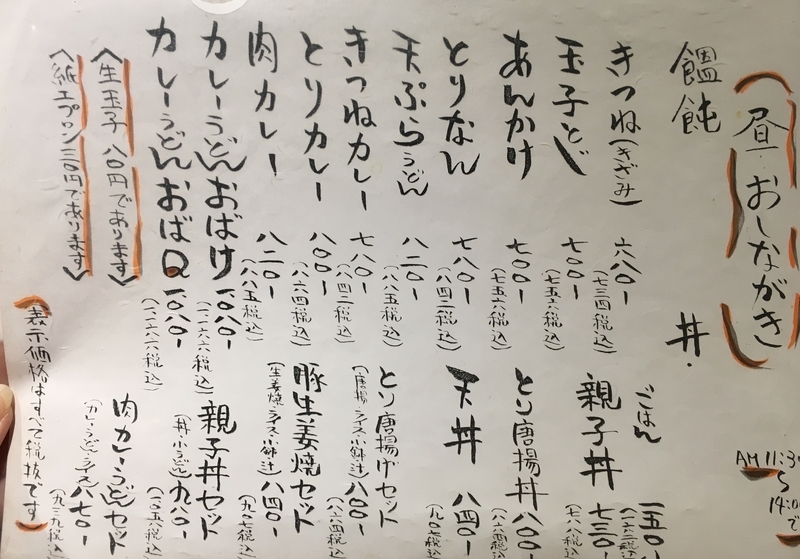 昼おしながき
AM 11:30
〜
14:00
で
饂飩
きつね(きざみ) 六八〇ー
(七三四税込)
玉子とじ 七〇〇ー
(七五六税込)
あんかけ 七〇〇ー
(七五六税込)
とりなん 七八〇ー
(八四二税込)
天ぷらうどん 八二〇ー
(八八五税込)
きつねカレー 七八〇ー
(八四二税込)
とりカレー 八〇〇ー
(八六四税込)
肉カレー 八二〇ー
(八八五税込)
カレーうどんおばけ 一〇八〇ー
(一一六六税込)
カレーうどんおばQ 一〇八〇ー
(一一六六税込)
〈生玉子 八〇円であります〉
〈紙エプロン三〇円であります〉
丼・
ごはん 一五〇
(一六二税込)
親子丼 七三〇ー
(七八八税込)
とり唐揚丼 八〇〇ー
(八六四税込)
天丼 八四〇ー
(九〇七税込)
とり唐揚げセット
(唐揚・ライス・小鉢・汁) 八〇〇ー
(八六四税込)
豚生姜焼セット
(生姜焼・ライス・小鉢・汁) 八四〇ー
(九〇七税込)
親子丼セット
(丼・小うどん) 九八〇ー
(一〇五八税込)
肉カレーうどんセット
(カレーうどん・ライス) 八七〇ー
(九三九税込)
(表示価格はすべて税抜です)